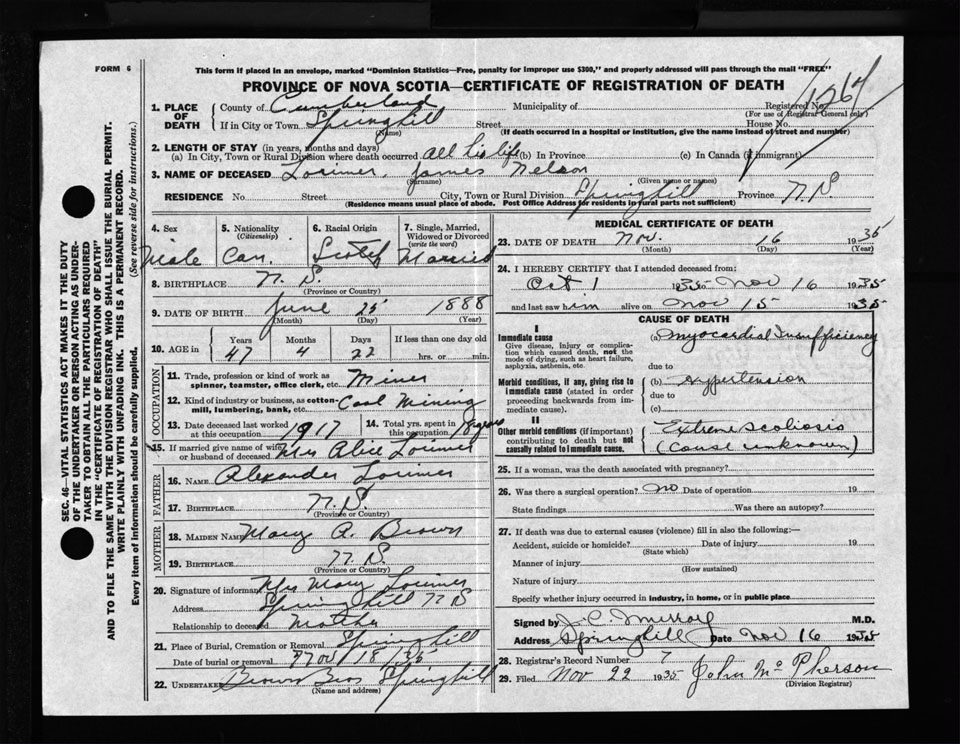 FORM 6
This form if placed in an envelope, marked "Dominion Statistics—Free, penalty for improper use $300," and properly addressed will pass through the mail "FREE"
PROVINCE OF NOVA SCOTIA—CERTIFICATE OF REGISTRATION OF DEATH
1. PLACE OF DEATH
County of Cumberland Municipality of Registered No.
(For use of Registrar General only)
If in City or Town Springhill Street House No.
(Name) (If death occurred in a hospital or institution, give the name instead of street and number)
2. LENGTH OF STAY (in years, months and days)
(a) In City, Town or Rural Division where death occurred All his life (b) In Province (c) In Canada (if immigrant)
3. NAME OF DECEASED Lorimer, James Nelson
(Surname) (Given name or names)
RESIDENCE No. Street City, Town or Rural Division Springhill Province N.S.
(Residence means usual place of abode. Post Office Address for residents in rural parts not sufficient)
4. Sex 5. Nationality 6. Racial Origin 7. Single, Married, Widowed or Divorced
(Citizenship) (write the word)
Male Can. Scotch Married
8. BIRTHPLACE N.S.
(Province or Country)
9. DATE OF BIRTH June 25 1888
(Month) (Day) (Year)
10. AGE in Years Months Days If less than one day old
47 4 22 hrs. or min.
OCCUPATION
11. Trade, profession or kind of work as spinner, teamster, office clerk, etc. Miner
12. Kind of industry or business, as cotton-mill, lumbering, bank, etc. Coal Mining
13. Date deceased last worked at this occupation 1917
14. Total yrs. spent in this occupation
15. If married give name of wife or husband of deceased Mrs Alice Lorimer
FATHER
16. NAME Alexander Lorimer
17. BIRTHPLACE N.S.
(Province or Country)
MOTHER
18. MAIDEN NAME Mary A. Brown
19. BIRTHPLACE N.S.
(Province or Country)
20. Signature of informant Mrs Mary Lorimer
Address Springhill N S
Relationship to deceased Mother
21. Place of Burial, Cremation or Removal Springhill
Date of burial or removal Nov 18/35
22. UNDERTAKER Brown Bros Springhill
(Name and address)
MEDICAL CERTIFICATE OF DEATH
23. DATE OF DEATH Nov. 16 1935
(Month) (Day) (Year)
24. I HEREBY CERTIFY that I attended deceased from:
Oct 1 1935 to Nov 16 1935
and last saw him alive on Nov 15 1935
CAUSE OF DEATH
I
Immediate cause (a) Myocardial Insufficiency
Give disease, injury or complication which caused death, not the mode of dying, such as heart failure, asphyxia, asthenia, etc.
due to
Morbid conditions, if any, giving rise to immediate cause (stated in order proceeding backwards from immediate cause). (b) Hypertension
due to
(c)
II
Other morbid conditions (if important) contributing to death but not causally related to immediate cause. Extreme Scoliosis
(Cause unknown)
25. If a woman, was the death associated with pregnancy?
26. Was there a surgical operation? no Date of operation 19
State findings Was there an autopsy?
27. If death was due to external causes (violence) fill in also the following:—
Accident, suicide or homicide? Date of injury 19
(State which)
Manner of injury
(How sustained)
Nature of injury
Specify whether injury occurred in industry, in home, or in public place
Signed by J. C. Murray M.D.
Address Springhill Date Nov 16 1935
28. Registrar's Record Number 7
29. Filed Nov 22 1935 John McPherson
(Division Registrar)
SEC. 46—VITAL STATISTICS ACT MAKES IT THE DUTY
OF THE UNDERTAKER OR PERSON ACTING AS UNDER-
TAKER TO OBTAIN ALL THE PARTICULARS REQUIRED
IN THE "CERTIFICATE OF REGISTRATION OF DEATH"
AND TO FILE THE SAME WITH THE DIVISION REGISTRAR WHO SHALL ISSUE THE BURIAL PERMIT.
WRITE PLAINLY WITH UNFADING INK. THIS IS A PERMANENT RECORD.
Every item of information should be carefully supplied. (See reverse side for instructions.)